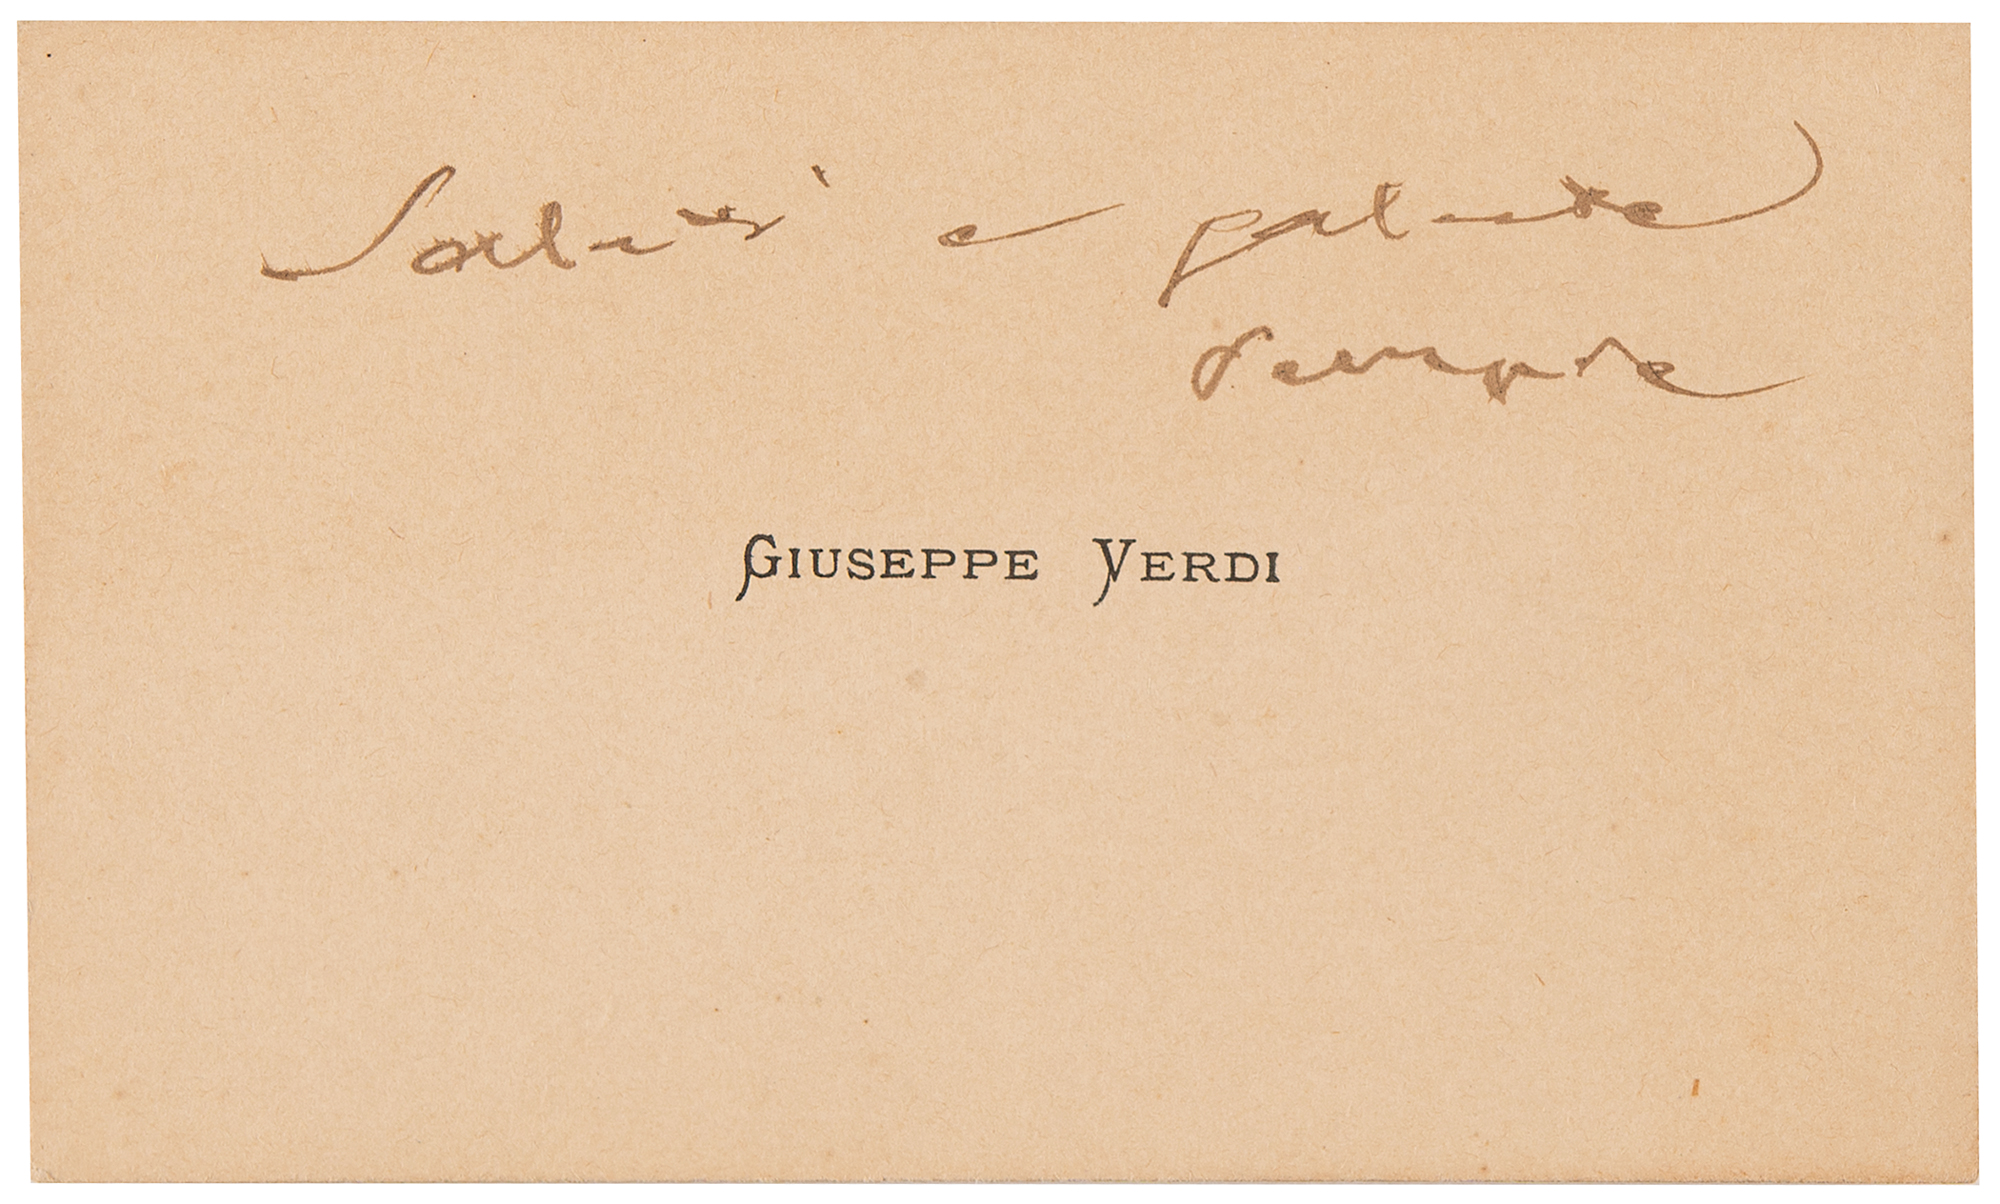 Saluti e salute
sempre
GIUSEPPE VERDI